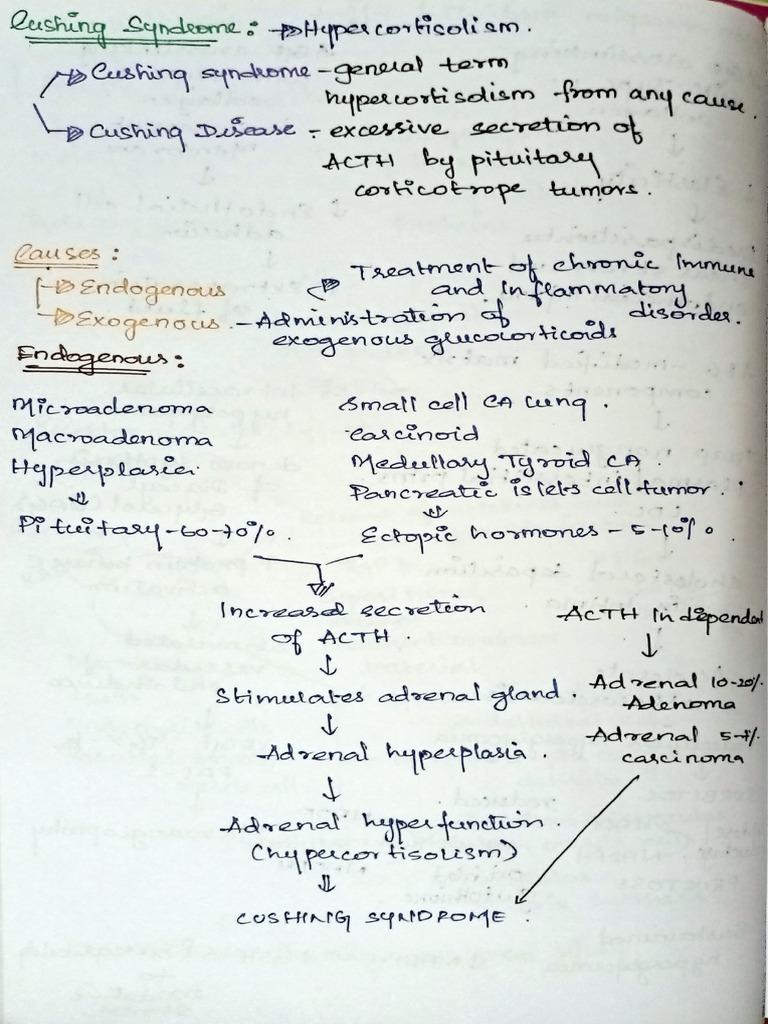 Cushing Syndrome: → Hypercorticolism.
→ Cushing syndrome - general term
hypercortisolism from any cause.
→ Cushing Disease - excessive secretion of
ACTH by pituitary
corticotrope tumors.
Causes:
→ Endogenous
→ Exogenous - Administration of
exogenous glucocorticoids
→ Treatment of chronic immune
and inflammatory
disorder.
Endogenous:
Microadenoma
Macroadenoma
Hyperplasia.
⇓
Pituitary - 60-70%.
Small cell CA lung.
carcinoid
Medullary Tyroid CA.
Pancreatic islets cell tumor.
⇓
Ectopic hormones - 5-10%.
⇓
Increased secretion
of ACTH.
↓
Stimulates adrenal gland.
↓
Adrenal hyperplasia.
↓
Adrenal hyperfunction.
(hypercortisolism)
⇓
CUSHING SYNDROME.
ACTH Independent
↓
Adrenal 10-20%.
Adenoma
Adrenal 5-7%
carcinoma